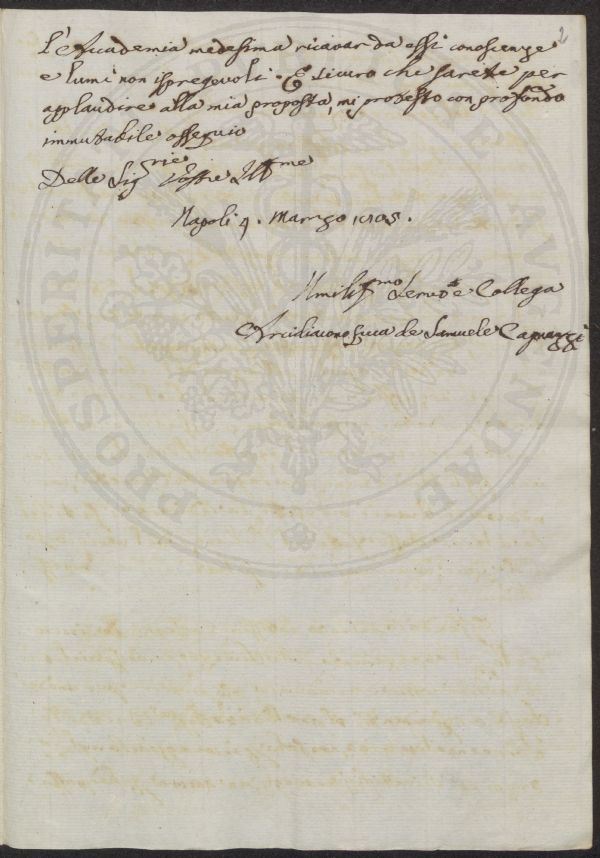 2
L'Accademia medesima ricavar da essi conoscenze
e lumi non ispregevoli. E sicuro che sarete per
applaudire alla mia proposta, mi protesto con profondo
immutabile ossequio
Delle Sig.rie Vostre Ill.me
Napoli 9. Marzo
Umiliss.mo Collega
Arcidiacono Luca de Samuele Cagnazzi
PROSPERITATI AUGENDAE